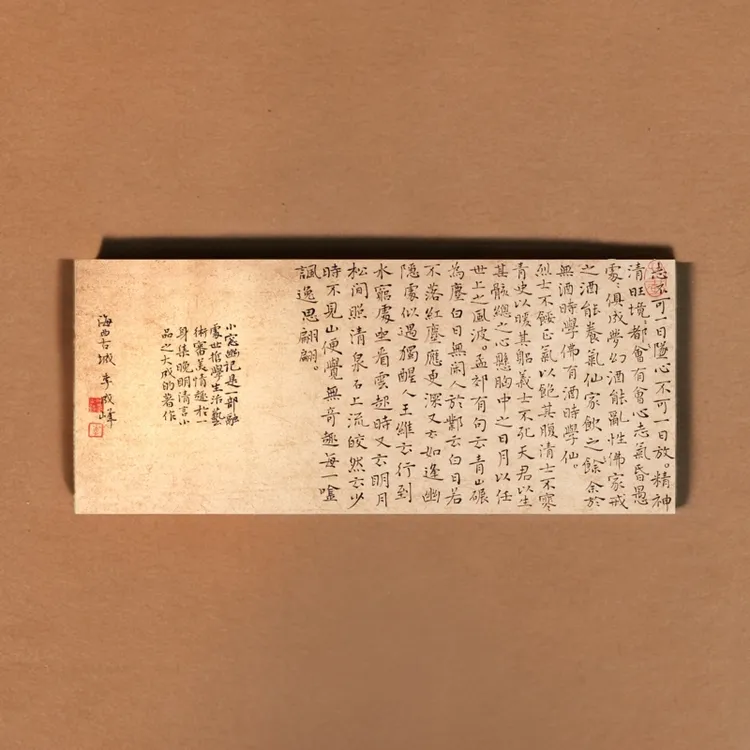 志不可一日隳心不可一日放。精神
清旺境都會有會心志氣昏愚
處〻俱成夢幻酒能亂性佛家戒
之酒能養氣仙家飲之餘余於
無酒時學佛有酒時學仙。
烈士不餒正氣以飽其腹清士不寒
青史以暖其軀義士不死天君以生
其骸總之心懸胸中之日月以任
世上之風波。孟郊有句云青山碾
為塵白日無閑人於鄴云白日若
不落紅塵應更深又云如逢幽
隱處似遇獨醒人王維云行到
水窮處坐看雲起時又云明月
松間照清泉石上流皎然云少
時不見山便覺無奇趣每一吟
諷逸思翩翩。
小窗幽記是一部融
處世哲學生活藝
術審美情趣於一
身集晚明清言小
品之大成的著作
海西古城 李成峰